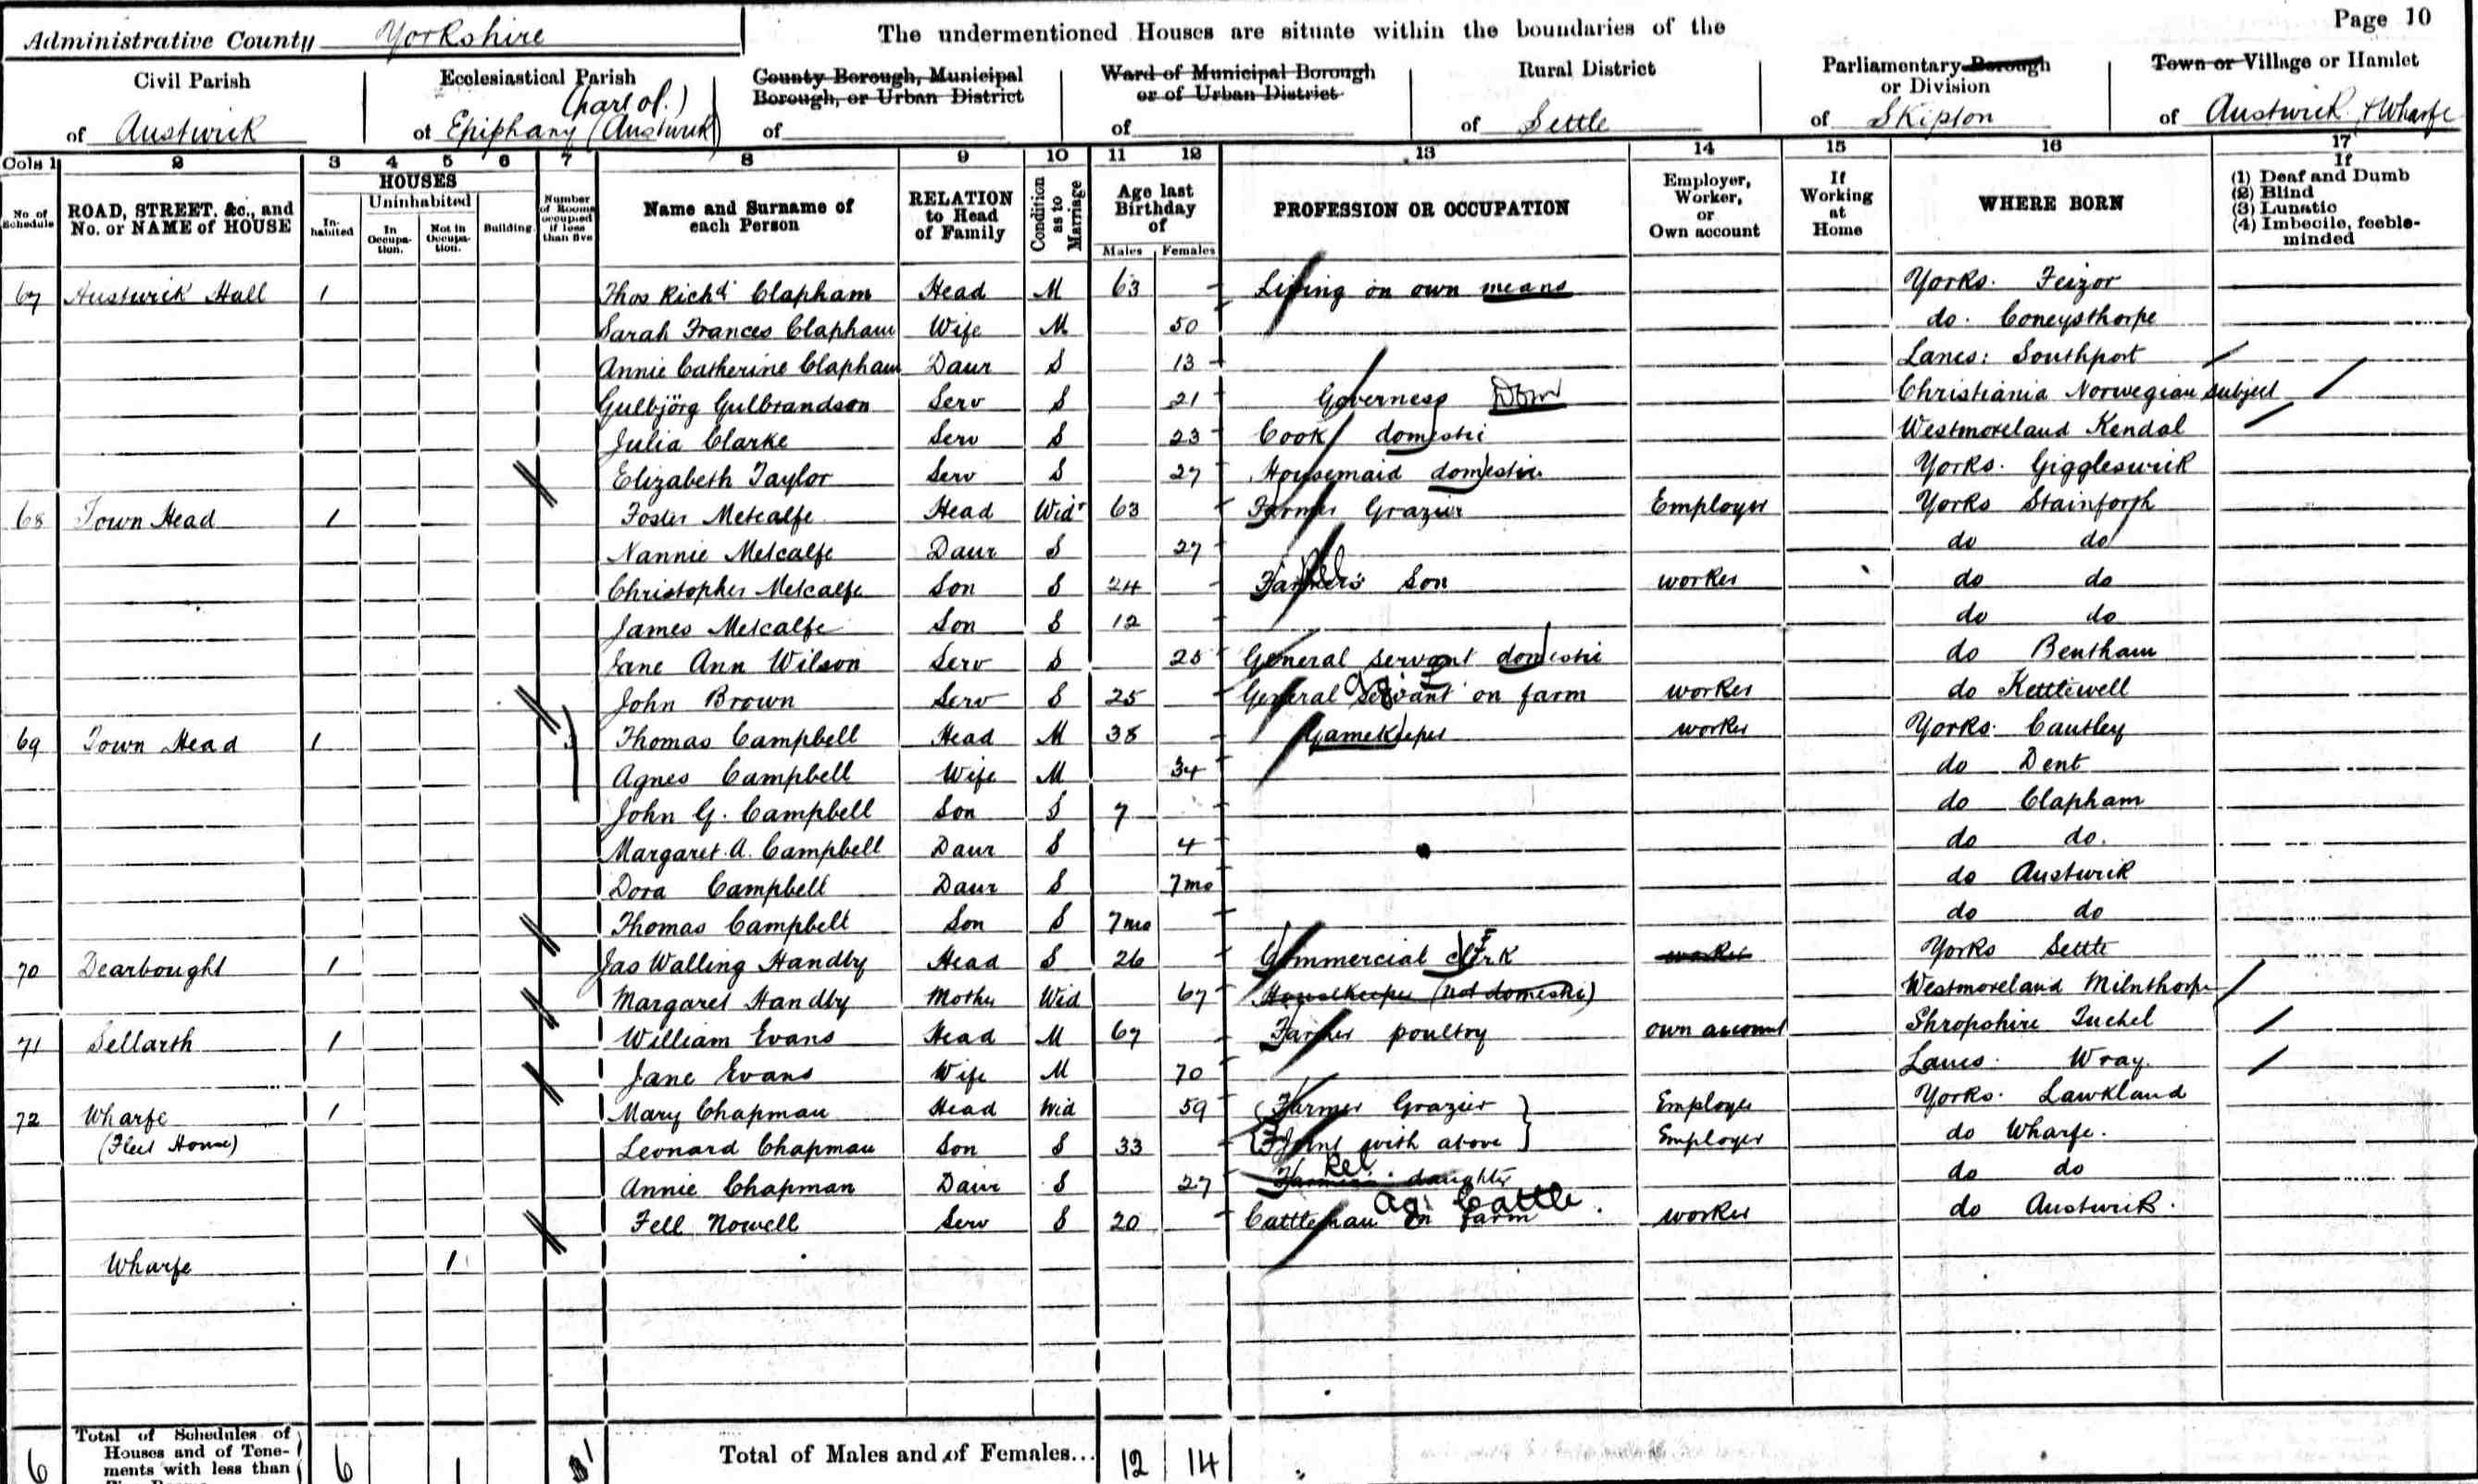 Page 10
Administrative County Yorkshire The undermentioned Houses are situate within the boundaries of the
Civil Parish of Austwick
Ecclesiastical Parish of Epiphany (Austwick)
County Borough, Municipal Borough, or Urban District of
Ward of Municipal Borough or of Urban District of
Rural District of Settle
Parliamentary Borough or Division of Skipton
Town or Village or Hamlet of Austwick & Wharfe
Cols 1 2 3 4 5 6 7 8 9 10 11 12 13 14 15 16 17
No. of Schedule
ROAD, STREET, &c., and No. or NAME of HOUSE
HOUSES
Inhabited
Uninhabited
In Occupation.
Not in Occupation.
Building
Number of Rooms occupied if less than five
Name and Surname of each Person
RELATION to Head of Family
Condition as to Marriage
Age last Birthday of
Males Females
PROFESSION OR OCCUPATION
Employer, Worker, or Own account
If Working at Home
WHERE BORN
If
(1) Deaf and Dumb
(2) Blind
(3) Lunatic
(4) Imbecile, feeble-minded
67 Austwick Hall 1 Thos Richd Clapham Head M 63 Living on own means Yorks. Feizor
Sarah Frances Clapham Wife M 50 do. Coneysthorpe
Annie Catherine Clapham Daur S 13 Lancs: Southport
Gulbjörg Gulbrandson Serv S 21 Governess Dom Christiania Norwegian subject
Julia Clarke Serv S 23 Cook domestic Westmoreland Kendal
Elizabeth Taylor Serv S 27 Housemaid domestic Yorks. Giggleswick
68 Town Head 1 Foster Metcalfe Head Widr 63 Farmer Grazier Employer Yorks Stainforth
Nannie Metcalfe Daur S 27 do do
Christopher Metcalfe Son S 24 Farmer's Son worker do do
James Metcalfe Son S 12 do do
Jane Ann Wilson Serv S 25 General servant domestic do Bentham
John Brown Serv S 25 General servant on farm worker do Kettlewell
69 Town Head 1 Thomas Campbell Head M 38 Gamekeeper worker Yorks. Cautley
Agnes Campbell Wife M 34 do Dent
John G. Campbell Son S 7 do Clapham
Margaret A. Campbell Daur S 4 do do.
Dora Campbell Daur S 7mo do Austwick
Thomas Campbell Son S 7mo do do
70 Dearbought 1 Jas Walling Handby Head S 26 Commercial clerk worker Yorks Settle
Margaret Handby Mother Wid 67 Housekeeper (not domestic) Westmoreland Milnthorpe
71 Sellarth 1 William Evans Head M 67 Farmer poultry own account Shropshire
Jane Evans Wife M 70 Lancs. Wray
72 Wharfe 1 Mary Chapman Head Wid 59 Farmer Grazier Employer Yorks. Lawkland
(Fleet House) Leonard Chapman Son S 33 Joint with above Employer do Wharfe.
Annie Chapman Daur S 27 Farmer's daughter Rel do do
Fell Nowell Serv S 20 Cattleman on farm Ag: Cattle worker do Austwick.
Wharfe 1
6 Total of Schedules of Houses and of Tenements with less than 6 1 1 Total of Males and of Females... 12 14